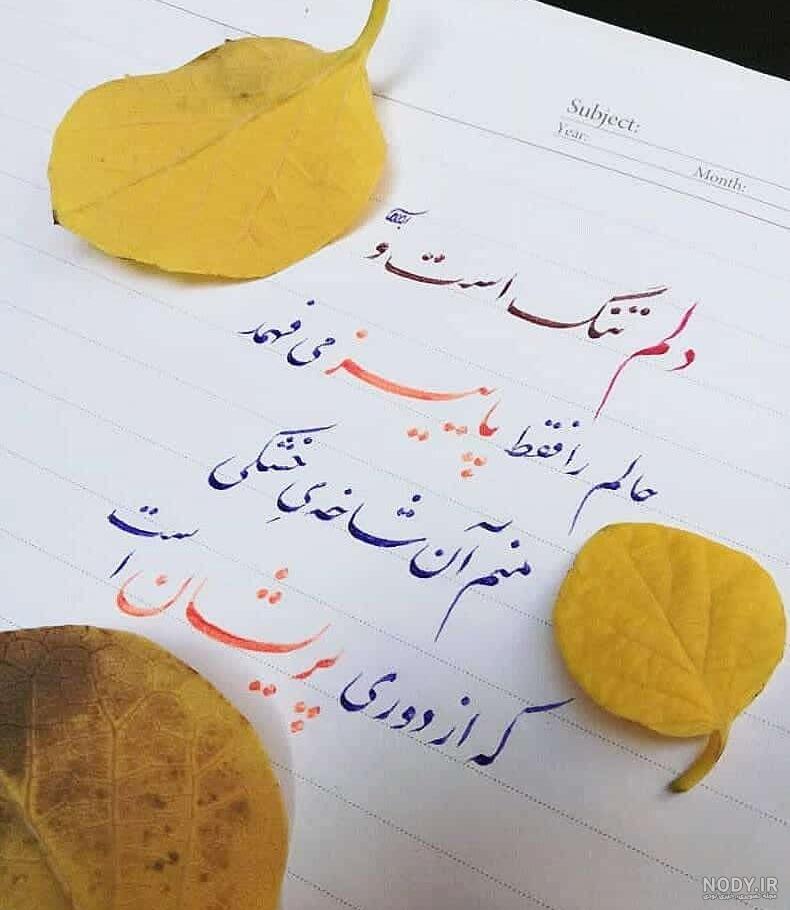 Subject:
Year:
Month:
دلم تنگ است و
حالم را فقط پاییز می فهمد
منم آن شاخه‌یِ خشکی
که از دوری پریشان است
NODY.IR